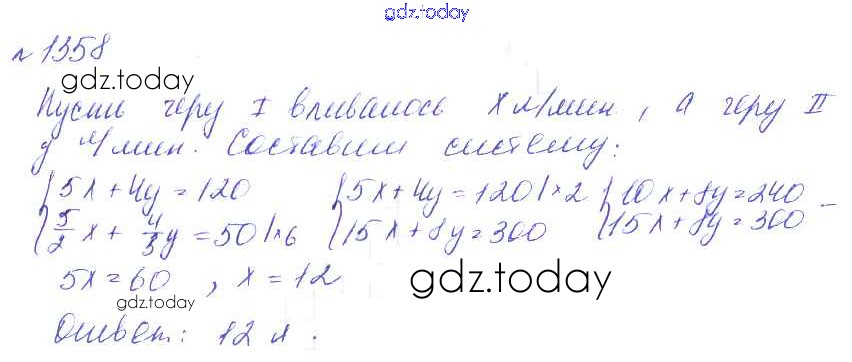 gdz.today
№ 1358
gdz.today
Пусть через I вливалось x л/мин, а через II
y л/мин. Составим систему:
{5x + 4y = 120 {5x + 4y = 120 | ×2 {10x + 8y = 240 –
{5/2 x + 4/3 y = 50 | ×6 {15x + 8y = 300 {15x + 8y = 300
5x = 60, x = 12
gdz.today gdz.today
Ответ: 12 л.